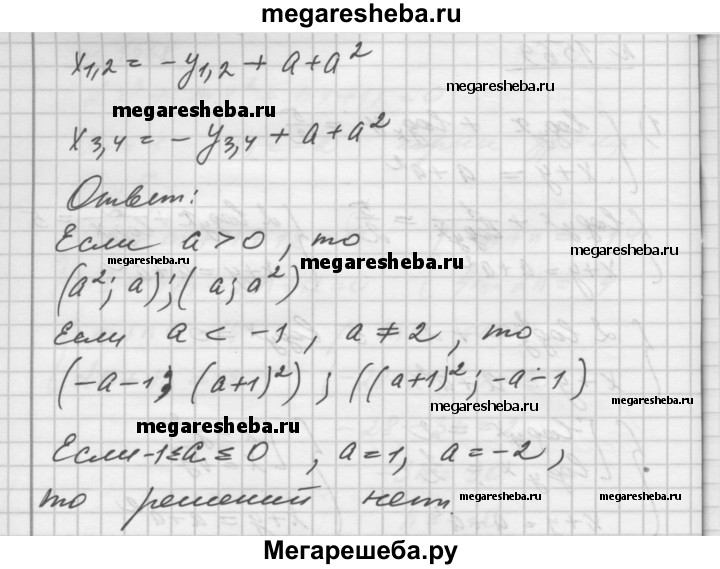 megaresheba.ru
x1,2 = -y1,2 + a + a²
megaresheba.ru
megaresheba.ru
x3,4 = -y3,4 + a + a²
Ответ:
megaresheba.ru
Если a > 0, то
megaresheba.ru
megaresheba.ru
megaresheba.ru
(a²; a); (a; a²)
Если a < -1, a ≠ 2, то
(-a-1; (a+1)²); ((a+1)²; -a-1)
megaresheba.ru
megaresheba.ru
Если -1 ≤ a ≤ 0, a = 1, a = -2,
то решений нет.
megaresheba.ru
megaresheba.ru
Мегарешеба.ру